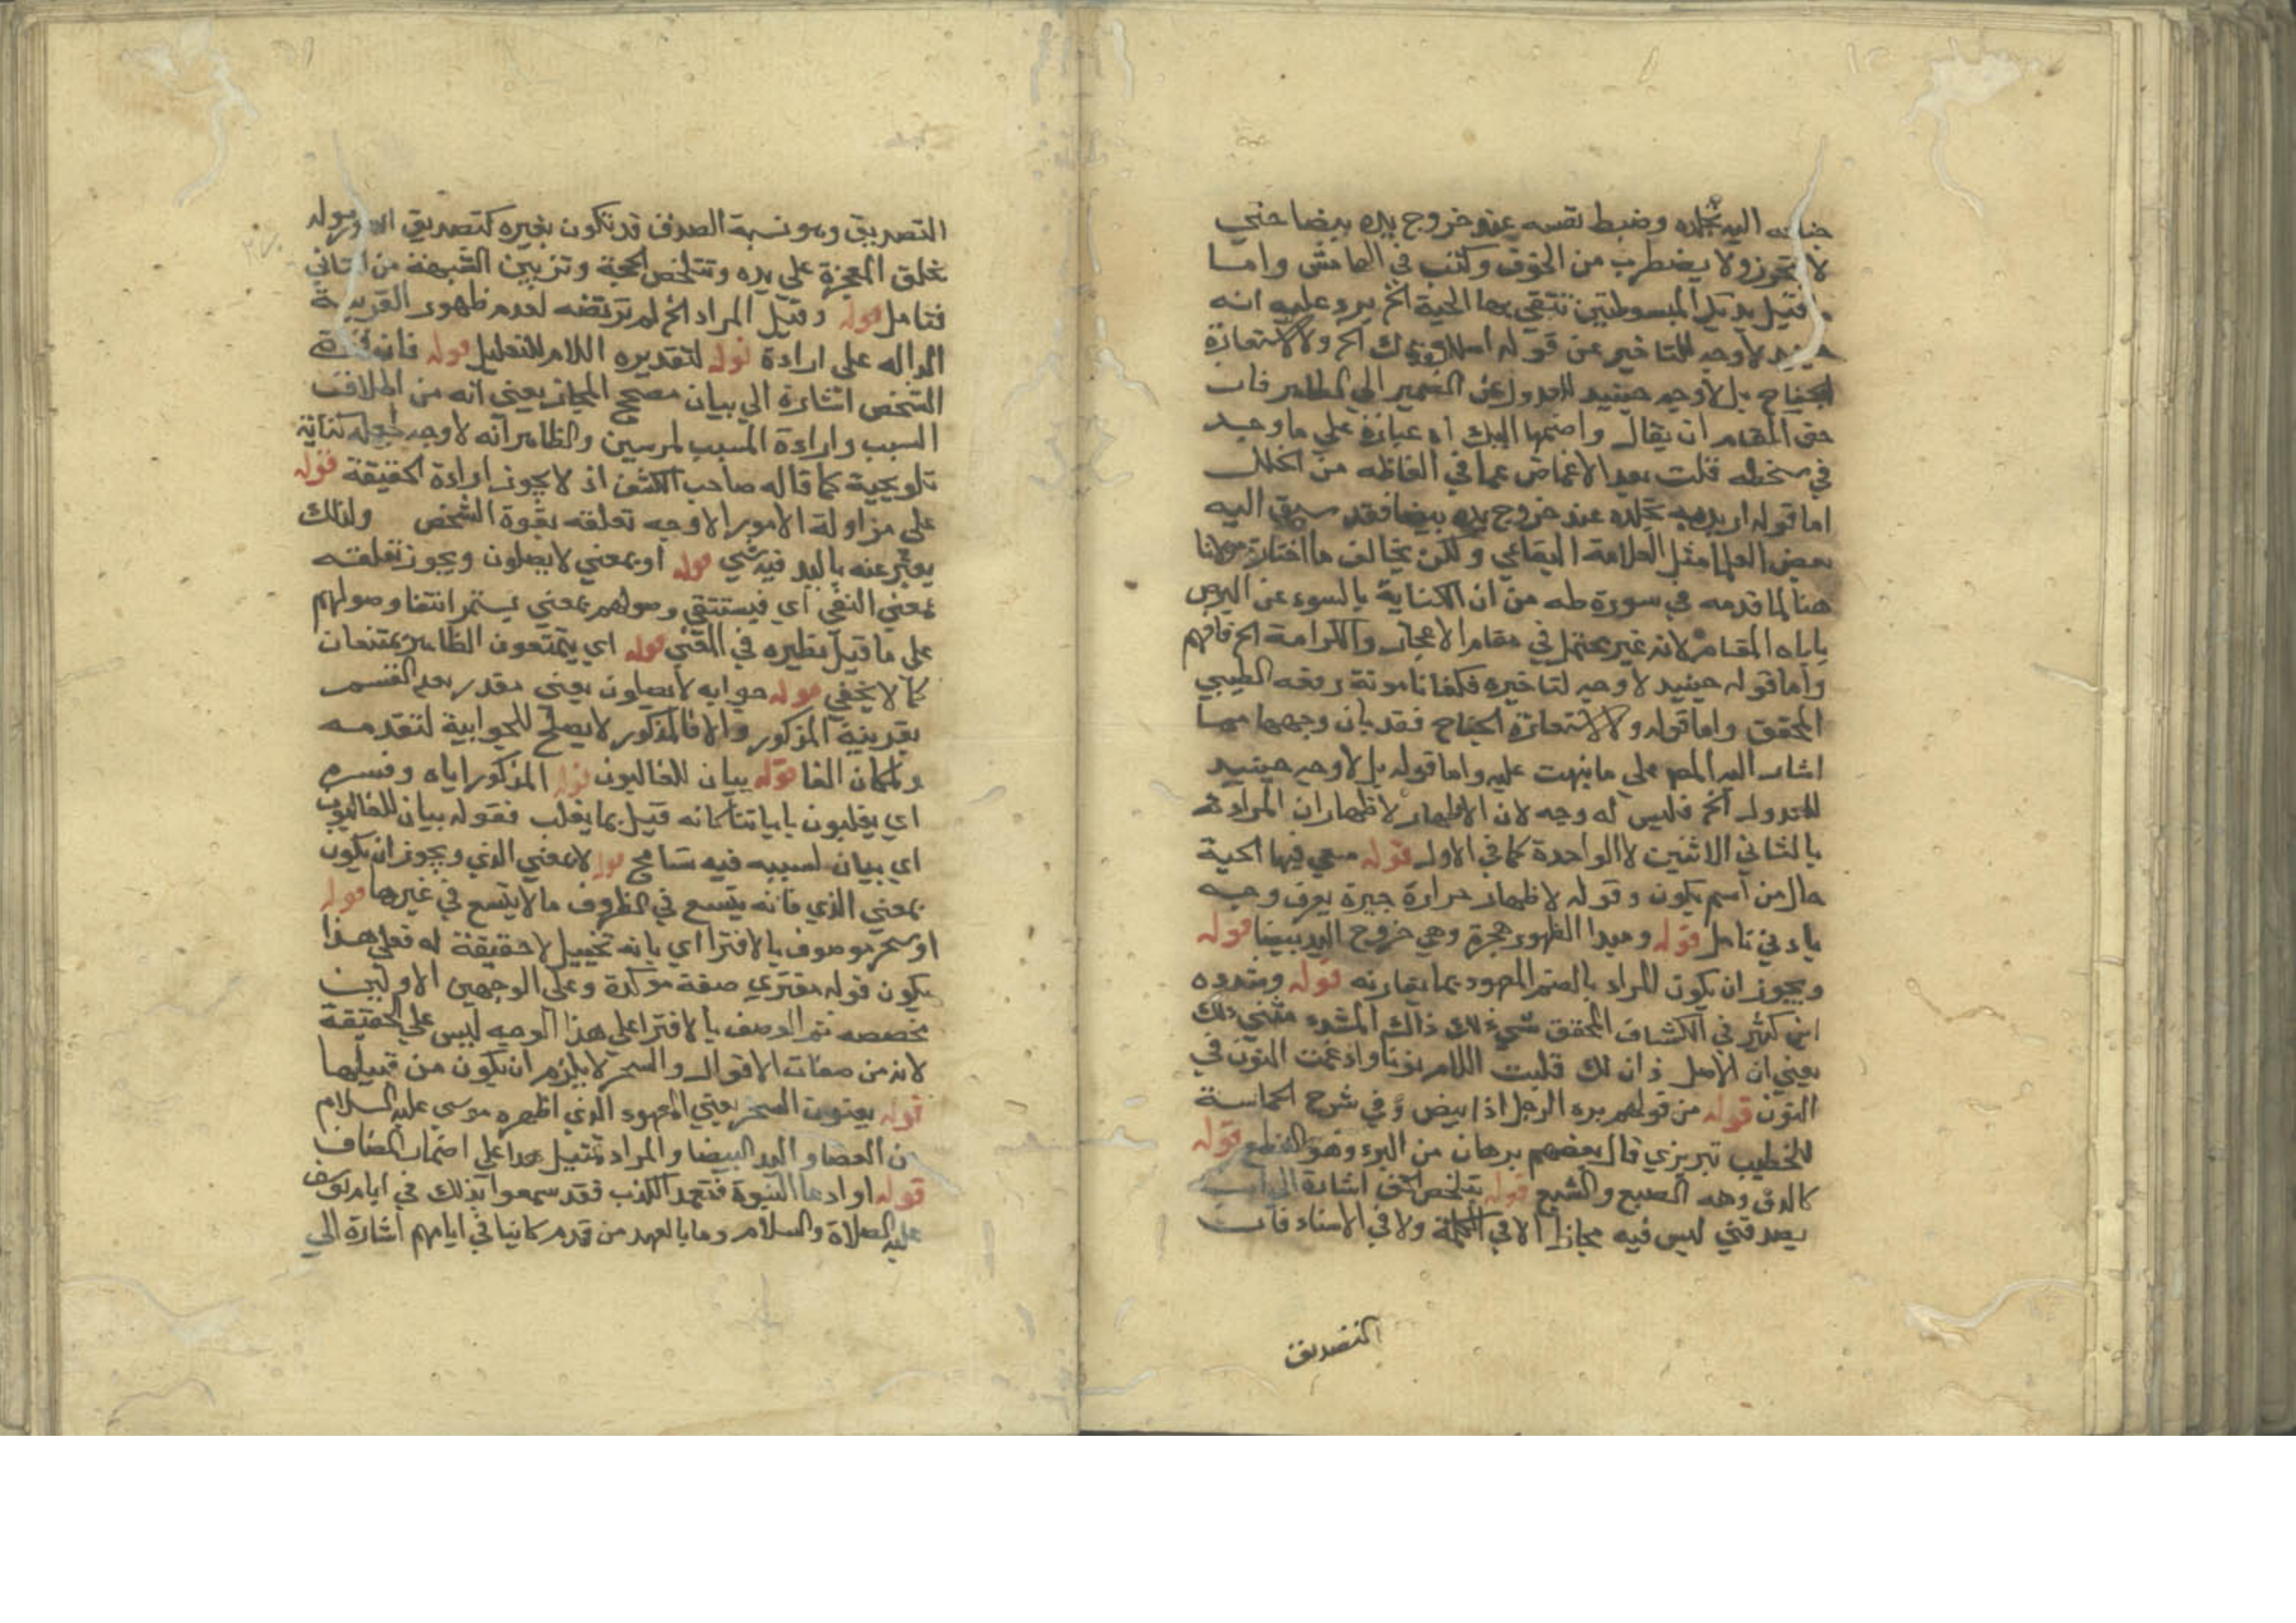 اليه تجلده وضبط نفسه عند خروج يده بيضا حتي
لا ولا يضطرب من الخوف وكتب في الهامش واما
قيل يديك المبسوطتين تتقي بهما الحية الخ يرد عليه انه
حينيد لا وجه للتاخير عن قوله اسلك يدك الخ ولا لاستعارة
الجناح بل لا وجه حينيد للعدول عن الضمير الي الظاهر فان
حق المقام ان يقال واضمها اليك اه عبارة علي ما وجد
في بخطه قلت بعد الاغماض عما في الفاظه من الخلل
اما قوله اريد به تجلده عند خروج يده بيضا فقد سبق اليه
بعض العلما مثل العلامة البقاعي ولكن يخالف ما اختاره مولانا
هنا لما قدمه في سورة طه من ان الكناية بالسوء عن البرص
ياباه المقام لانه غير محتمل في مقام الاعجاز والكرامة الخ فافهم
واما قوله حينيد لا وجه لتاخيره فكفانا مونة رفعه الطيبي
المحقق واما قوله ولا لاستعارة الجناح فقد بان وجهها مما
اشار اليه المص علي ما نبهت عليه واما قوله بل لا وجه حينيد
للعدول الخ فليس له وجه لان الاظهار لاظهار ان المراد
بالثاني الاثنين لا الواحدة كما في الاول قوله فيها الحية
حال من اسم يكون وقوله لاظهار حرارة يعرف وجهه
بادني تامل قوله ومبدا الظهور معجزة وهي خروج اليد بيضا قوله
ويجوز ان يكون المراد بالضم المعهود بما يقارنه قوله وشدده
ابن كثير في الكشاف المحقق ذاك المشدد مثني ذلك
يعني ان الاصل ذان لك قلبت اللام نونا وادغمت النون في
النون قوله من قولهم بره الرجل اذا ابيض وفي شرح الحماسة
للخطيب تبريزي قال بعضهم برهان من البره وهو القطع قوله
كالدق وهه الصبع والشبع قوله بتلخيص الحق اشارة الي ان
يصدقني ليس فيه مجازا لا في الكلمة ولا في الاسناد فان
التصديق
التصديق وهو نسبة الصدق قد تكون بغيره كتصديق الله رسوله
بخلق المعجزة علي يده وتتلخص الحجة وتزييف الشبهة من الثاني
فتامل قوله وقيل المراد الخ لم ترتضه لعدم ظهور القرينة
الداله علي ارادة قوله لتقديره اللام للتعليل قوله فان قوة
الشخص اشارة الي بيان مصحح المجاز يعني انه من اطلاق
السبب وارادة المسبب لمرسين والظاهر انه لا وجه لجعله كناية
تلويحية كما قاله صاحب الكشف اذ لا يجوز ارادة الحقيقة قوله
علي مزاولة الامور الاوجه تعلقه بقوة الشخص ولذلك
يعبر عنه باليد فيه شي قوله او بمعني لا يصلون ويجوز تعلقه
بمعني النفي اي فيستنفي وصولهم بمعني يستمر انتفا وصولهم
علي ما قيل نظيره في المغني قوله اي يمتنعون الظاهر يمتنعان
كما لا يخفي قوله جوابه لا يصلون يعني مقدر بعد القسم
بقرينة المذكور والا فالمذكور لا يصلح للجوابية لتقدمه
ولمكان الفا قوله بيان للغالبون قوله المذكور اياه وفسره
اي يغلبون باياتنا كانه قيل بما يغلب فقوله بيان للغالبون
اي بيان لسببه فيه تسامح قوله لا بمعني الذي ويجوز ان يكون
بمعني الذي فانه يتسع في الظروف ما لا يتسع في غيرها قوله
او سحر موصوف بالافترا اي بانه تخييل لا حقيقة له فعلي هذا
يكون قوله مفتري صفة موكدة وعلي الوجهين الاولين
مخصصه ثم الوصف بالافترا علي هذا الوجه ليس علي الحقيقة
لانه من صفات الاقوال والسحر لا يلزم ان يكون من قبيلها
قوله يعنون السحر يعني المعهود الذي اظهره موسي عليه السلام
من العصا واليد البيضا والمراد تمثيل هذا علي اضمار المضاف
قوله او ادعا النبوة فتعمد الكذب فقد سمعوا بذلك في ايام يوسف
عليه الصلاة والسلام وما بالعهد من قدم كاينا في ايامهم اشارة الي